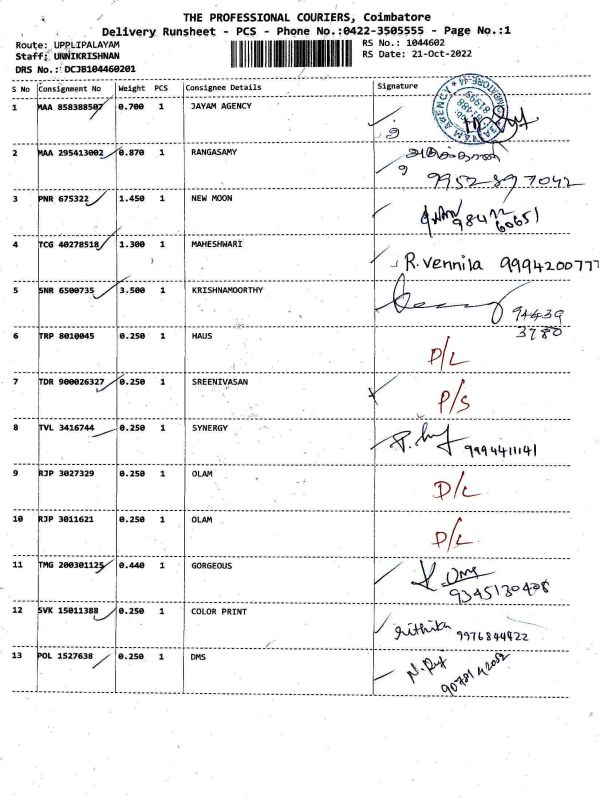 THE PROFESSIONAL COURIERS, Coimbatore
Delivery Runsheet - PCS - Phone No.:0422-3505555 - Page No.:1
Route: UPPLIPALAYAM RS No.: 1044602
Staff: UNNIKRISHNAN RS Date: 21-Oct-2022
DRS No.: DCJB104460201
S No Consignment No Weight PCS Consignee Details Signature
1 MAA 858388507 0.700 1 JAYAM AGENCY
2 MAA 295413002 0.870 1 RANGASAMY
9952897042
3 PNR 675322 1.450 1 NEW MOON 98422
60651
4 TCG 40278518 1.300 1 MAHESHWARI R.Vennila 9994200777
5 SNR 6500735 3.500 1 KRISHNAMOORTHY
94439
3780
6 TRP 8010045 0.250 1 HAUS D/L
7 TDR 900026327 0.250 1 SREENIVASAN P/S
8 TVL 3416744 0.250 1 SYNERGY 9994411141
9 RJP 3027329 0.250 1 OLAM D/L
10 RJP 3011621 0.250 1 OLAM D/L
11 TMG 200301125 0.440 1 GORGEOUS K. Uma
9345130408
12 SVK 15011388 0.250 1 COLOR PRINT Rithika 9976844422
13 POL 1527638 0.250 1 DMS